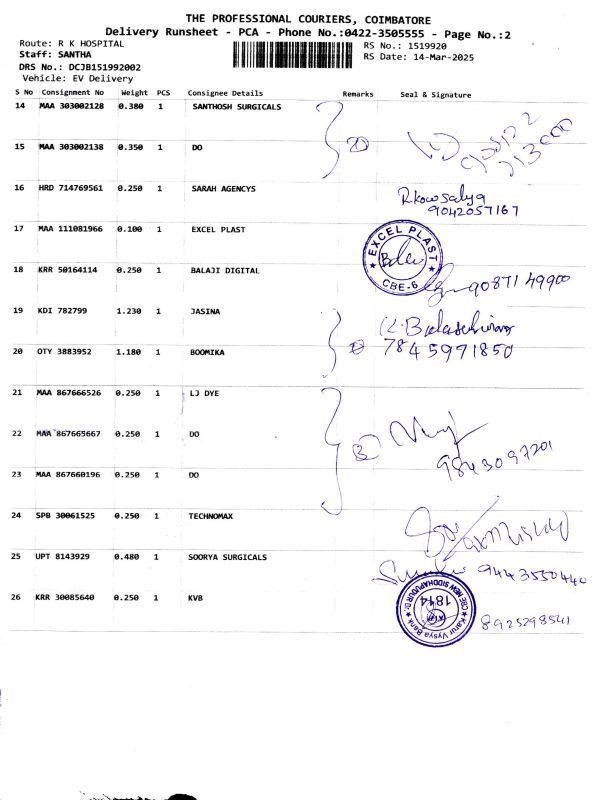 THE PROFESSIONAL COURIERS, COIMBATORE
Delivery Runsheet - PCA - Phone No.:0422-3505555 - Page No.:2
Route: R K HOSPITAL
RS No.: 1519920
Staff: SANTHA
RS Date: 14-Mar-2025
DRS No.: DCJB151992002
Vehicle: EV Delivery
S No Consignment No Weight PCS Consignee Details Remarks Seal & Signature
14 MAA 303002128 0.380 1 SANTHOSH SURGICALS
15 MAA 303002138 0.350 1 DO
16 HRD 714769561 0.250 1 SARAH AGENCYS
R.kowsalya
9042057167
17 MAA 111081966 0.100 1 EXCEL PLAST
EXCEL PLAST
CBE-6
18 KRR 50164114 0.250 1 BALAJI DIGITAL
9087149900
19 KDI 782799 1.230 1 JASINA
20 OTY 3883952 1.180 1 BOOMIKA
7845971850
21 MAA 867666526 0.250 1 LJ DYE
22 MAA 867665667 0.250 1 DO
23 MAA 867660196 0.250 1 DO
9843097201
24 SPB 30061525 0.250 1 TECHNOMAX
25 UPT 8143929 0.480 1 SOORYA SURGICALS
9443550440
26 KRR 30085640 0.250 1 KVB
Karur Vysya Bank
CBE NEW SIDDHAPUDUR Br.
1814
8925298541